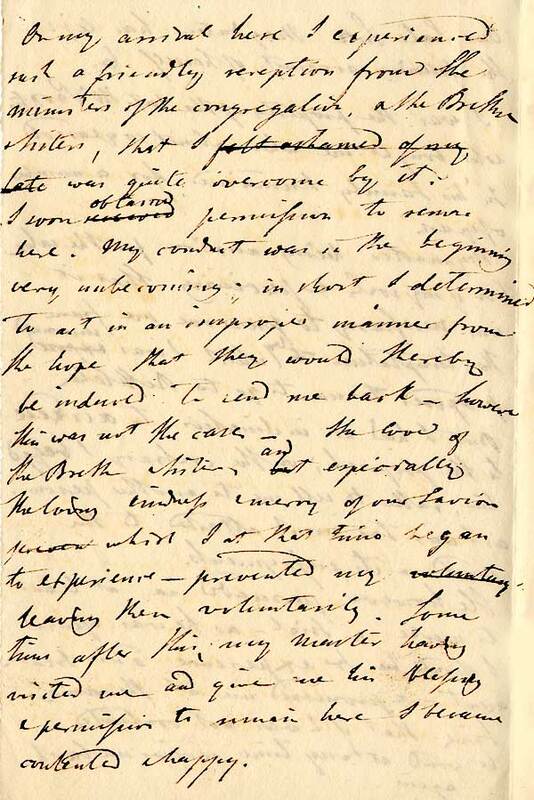 On my arrival here I experienced
such a friendly reception from the
ministers of the congregation, & the Breth
& sisters, that I felt ashamed of my
late was quite overcome by it.
obtained
I soon received permission to remain
here. My conduct was in the beginning
very unbecoming; in short I determined
to act in an improper manner from
the hope that they would thereby
be induced to send me back – however
this was not the case – the love of
and
the Breth & sisters, but especially
the loving kindness & mercy of our Saviour
which I at that time began
to experience – prevented my voluntary
leaving them voluntarily. Some
time after this, my master having
visited me and give me his blessing
& permission to remain here I became
contented & happy.